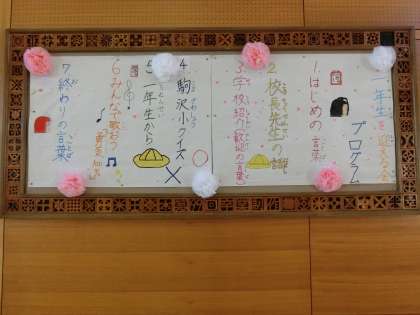 一年生を迎える会
プログラム
1.はじめの言葉
2.校長先生の話
3.学校紹介(歓迎の言葉)
4.駒沢小クイズ
5.一年生から
6.みんなで歌おう
7.終わりの言葉